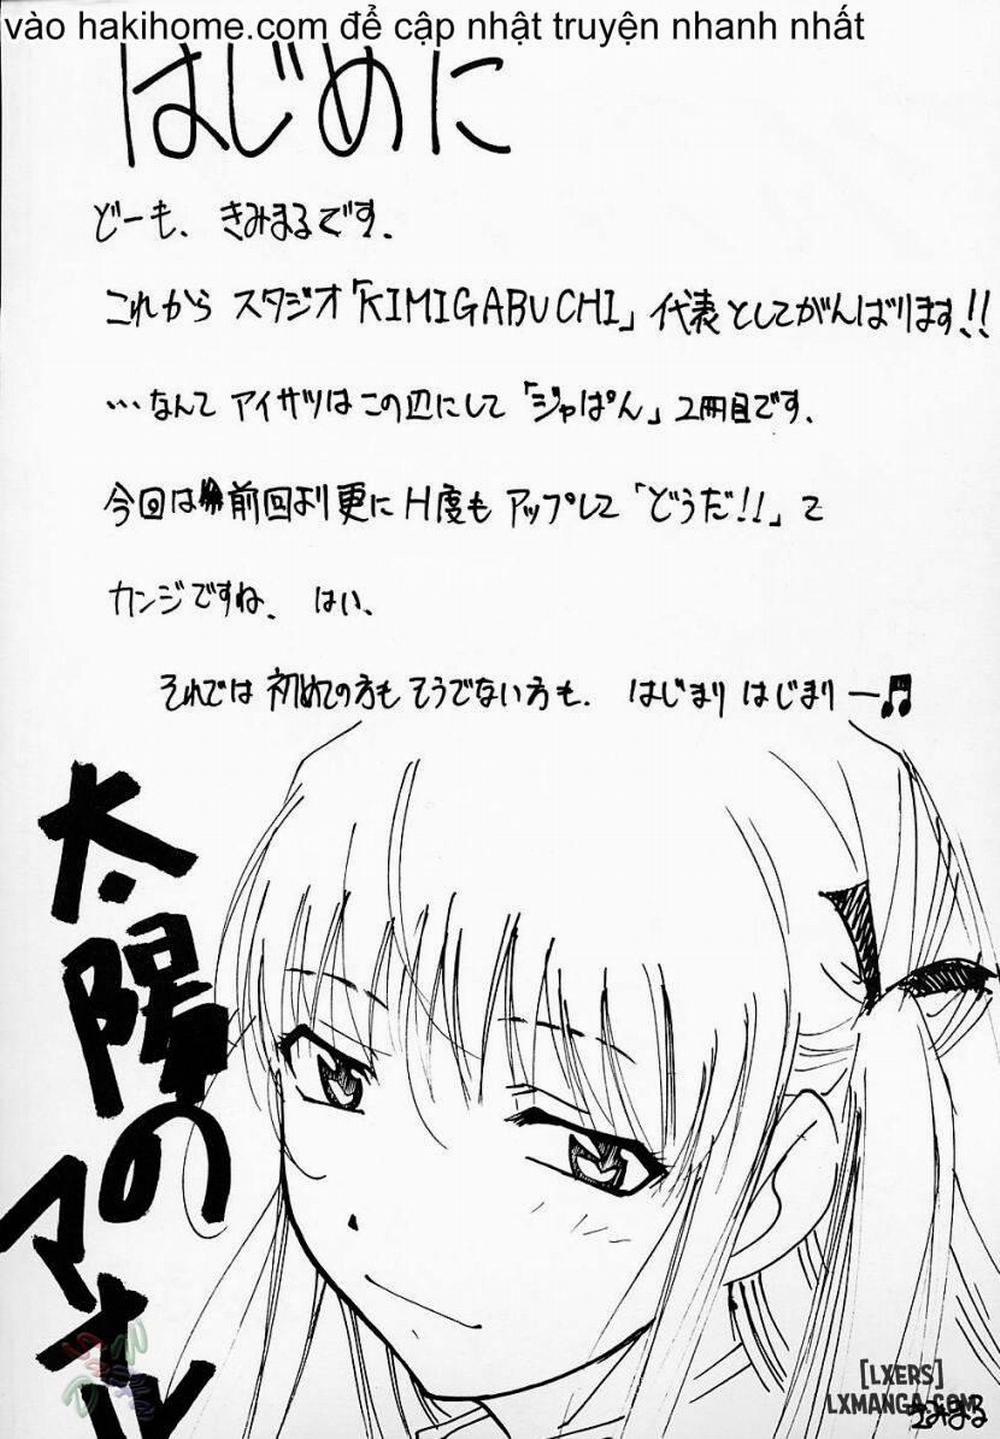 vào hakihome.com để cập nhật truyện nhanh nhất
はじめに
どーも、きみまるです.
これから スタジオ「KIMIGABUCHI」代表としてがんばります!!
…なんて アイサツはこの辺にして「ジャぱん」2冊目です.
今回は前回より更に H度も アップして「どうだ!!」て
カンジですね. はい.
それでは 初めての方も そうでない方も. はじまり はじまりー♫
太陽の
マオ
[LXERS]
LXMANGA.COM
きみまる